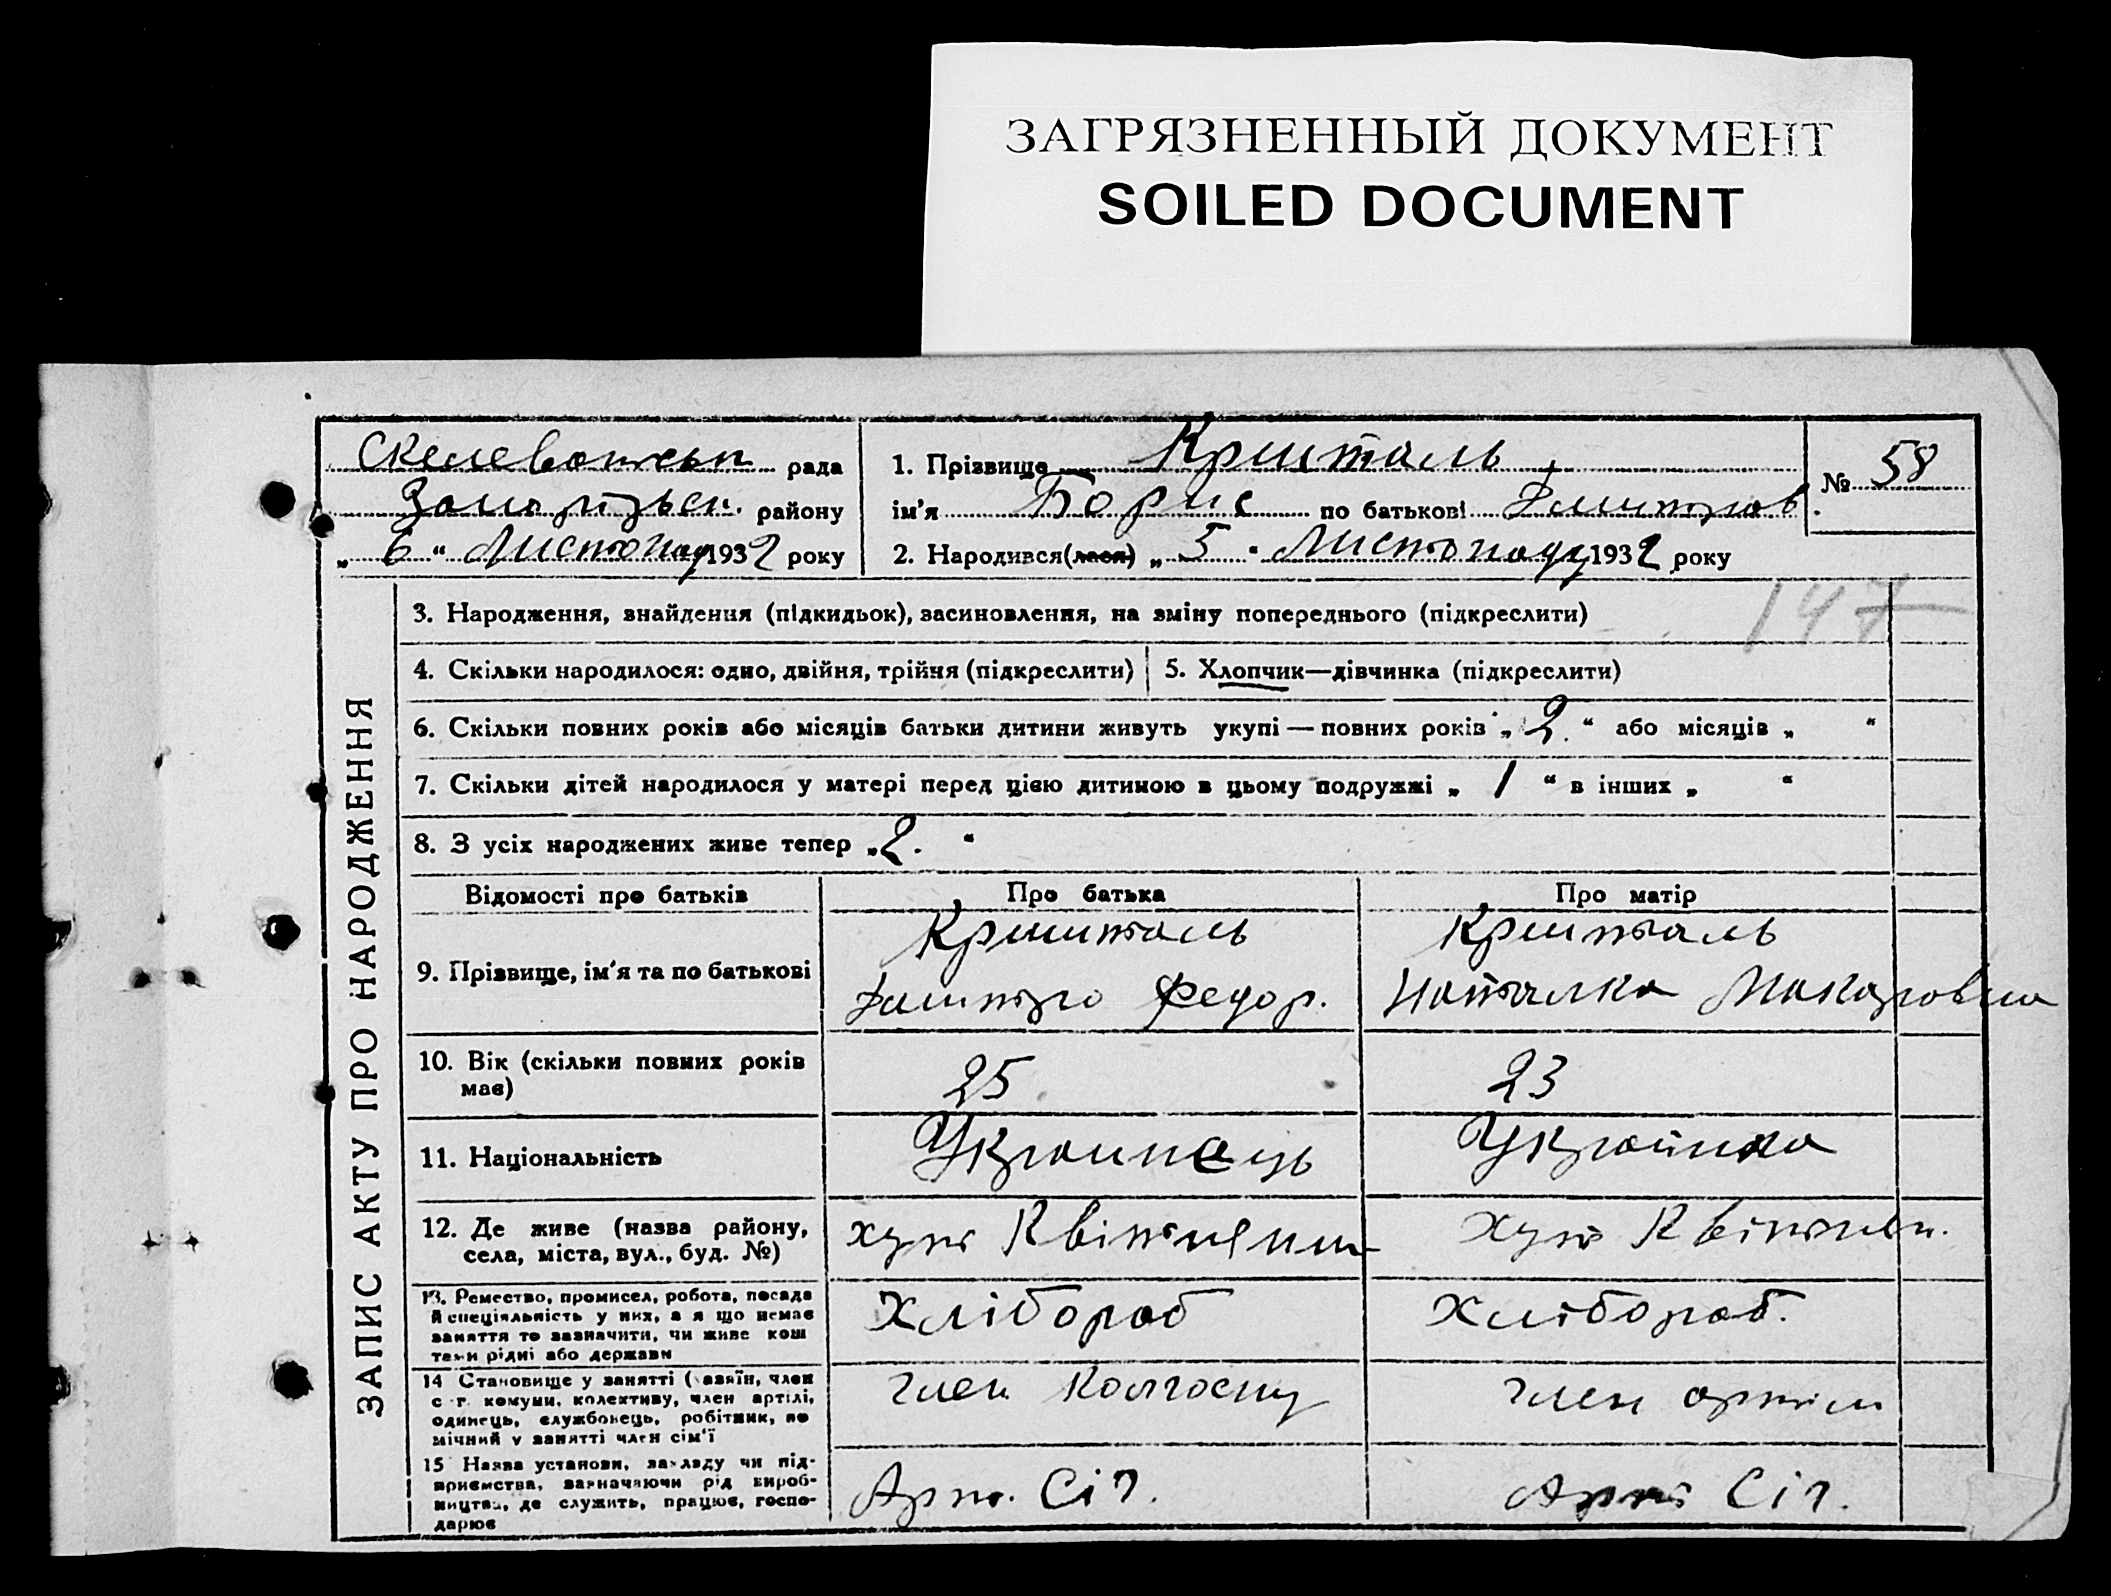 ЗАГРЯЗНЕННЫЙ ДОКУМЕНТ
SOILED DOCUMENT
рада
району
„ 6 “ Листопаду 1932 року
1. Прізвище Кришталь
ім'я Борис по батькові Дмитров.
2. Народився(лася) „ 5 “ Листопаду 1932 року
№ 58
147
ЗАПИС АКТУ ПРО НАРОДЖЕННЯ
3. Народження, знайдення (підкидьок), засиновлення, на зміну попереднього (підкреслити)
4. Скільки народилося: одно, двійня, трійня (підкреслити)
5. Хлопчик—дівчинка (підкреслити)
6. Скільки повних років або місяців батьки дитини живуть укупі — повних років „ 2. “ або місяців „ “
7. Скільки дітей народилося у матері перед цією дитиною в цьому подружжі „ 1 “ в інших „ “
8. З усіх народжених живе тепер „ 2. “
Відомості про батьків
Про батька
Про матір
9. Прізвище, ім'я та по батькові
Кришталь
Дмитро Федор.
Кришталь
Наталка Макаровна
10. Вік (скільки повних років
має)
25
23
11. Національність
Украинець
Українка
12. Де живе (назва району,
села, міста, вул., буд. №)
хут
Хут
13. Ремество, промисел, робота, посада
й спеціяльність у них, а я що немає
заняття то зазначити, чи живе кош
тами рідні або держави
Хлібороб
Хлібороб.
14 Становище у занятті (хазяїн, член
с.-г. комуни, колективу, член артілі,
одинець, службовець, робітник, по
мічний у занятті член сім'ї
Член Колгоспу
Член артіли
15 Назва установи, закладу чи під-
приємства, зазначаючи рід вироб-
ництва, де служить, працює, госпо-
дарює
Арт. Січ.
Арт Січ.